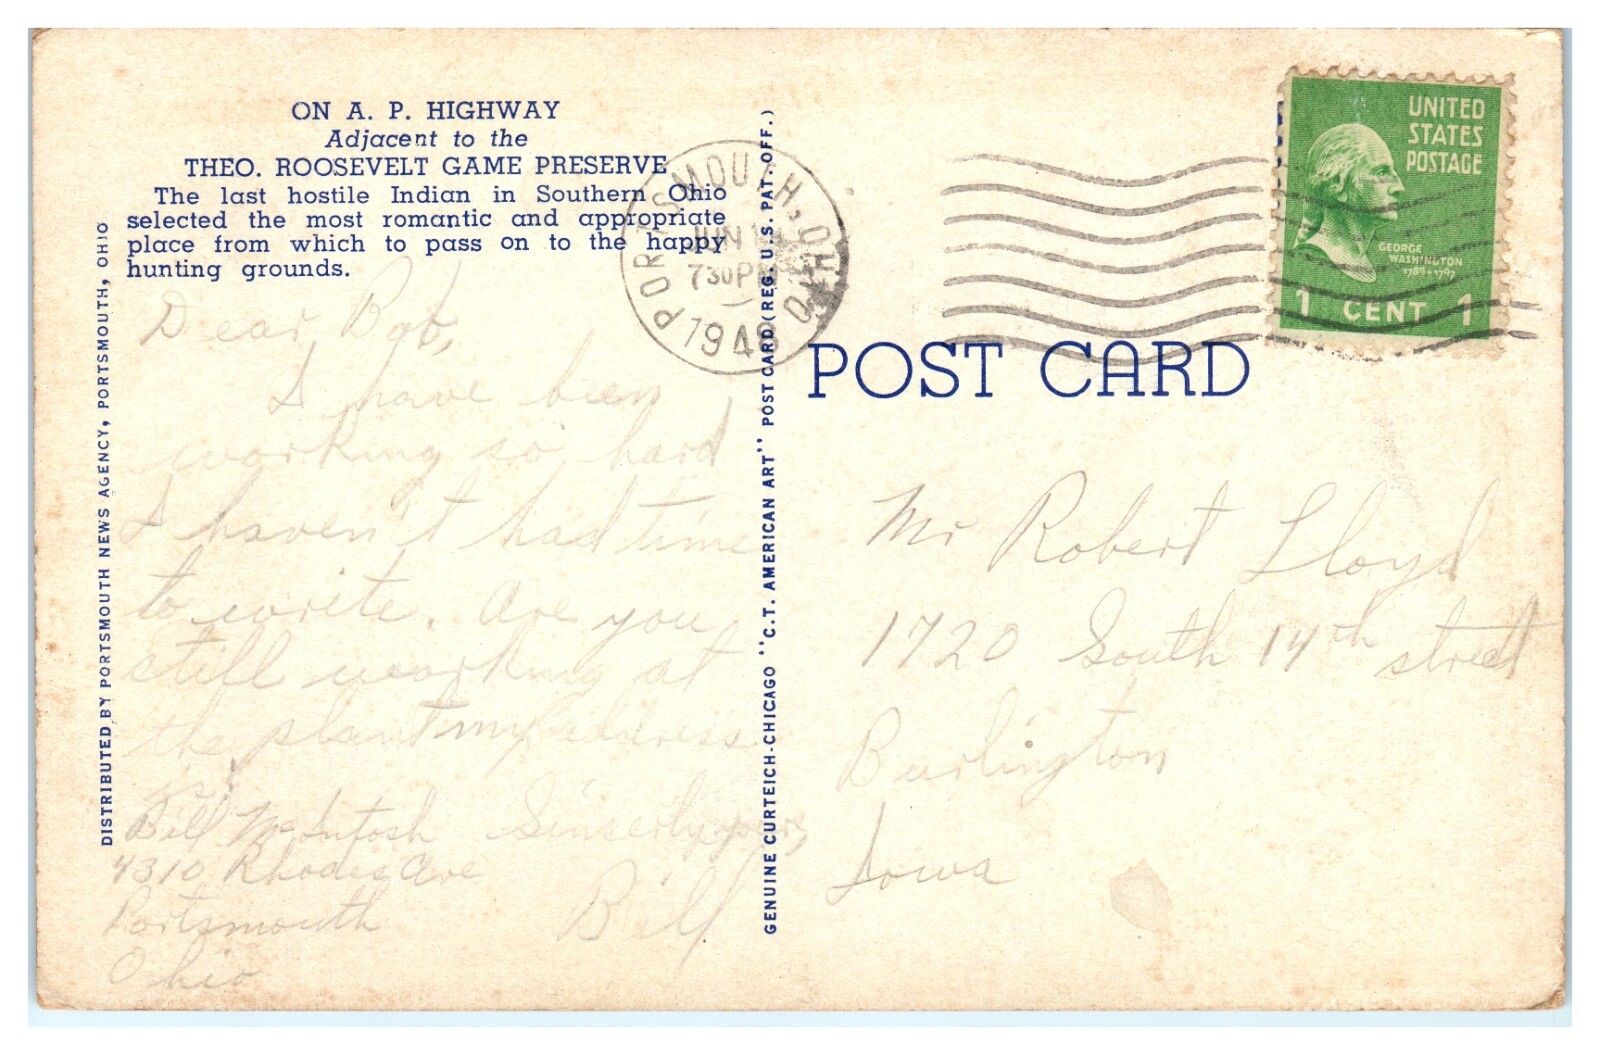 ON A. P. HIGHWAY
Adjacent to the
THEO. ROOSEVELT GAME PRESERVE
The last hostile Indian in Southern Ohio
selected the most romantic and appropriate
place from which to pass on to the happy
hunting grounds.
Dear Bob,
I have been
working so hard
I haven't had time
to write. Are you
still working at
the plant my address
is:
Bill McIntosh
4310 Rhodes Ave
Portsmouth
Ohio
Sincerly yours,
Bill
DISTRIBUTED BY PORTSMOUTH NEWS AGENCY, PORTSMOUTH, OHIO
GENUINE CURTEICH-CHICAGO "C.T. AMERICAN ART" POST CARD (REG. U.S. PAT. OFF.)
PORTSMOUTH, OHIO
JUN
730 PM
1948
UNITED
STATES
POSTAGE
GEORGE
WASHINGTON
1789-1797
1 CENT 1
POST CARD
Mr Robert Lloyd
1720 South 14th street
Burlington
Iowa